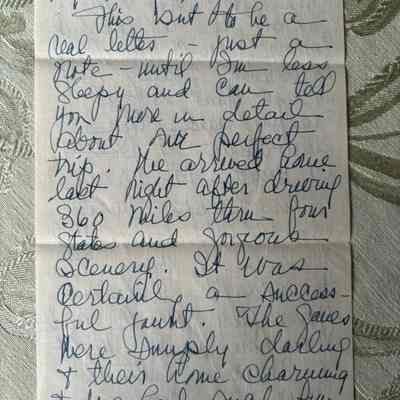 This isn't to be a
real letter - just a
note - until I'm less
sleepy and can tell
you more in detail
about our perfect
trip. We arrived home
last night after driving
360 miles thru four
states and gorgeous
scenery. It was
certainly a success-
ful jaunt. The
were simply darling
+ their home charming
+ we had such